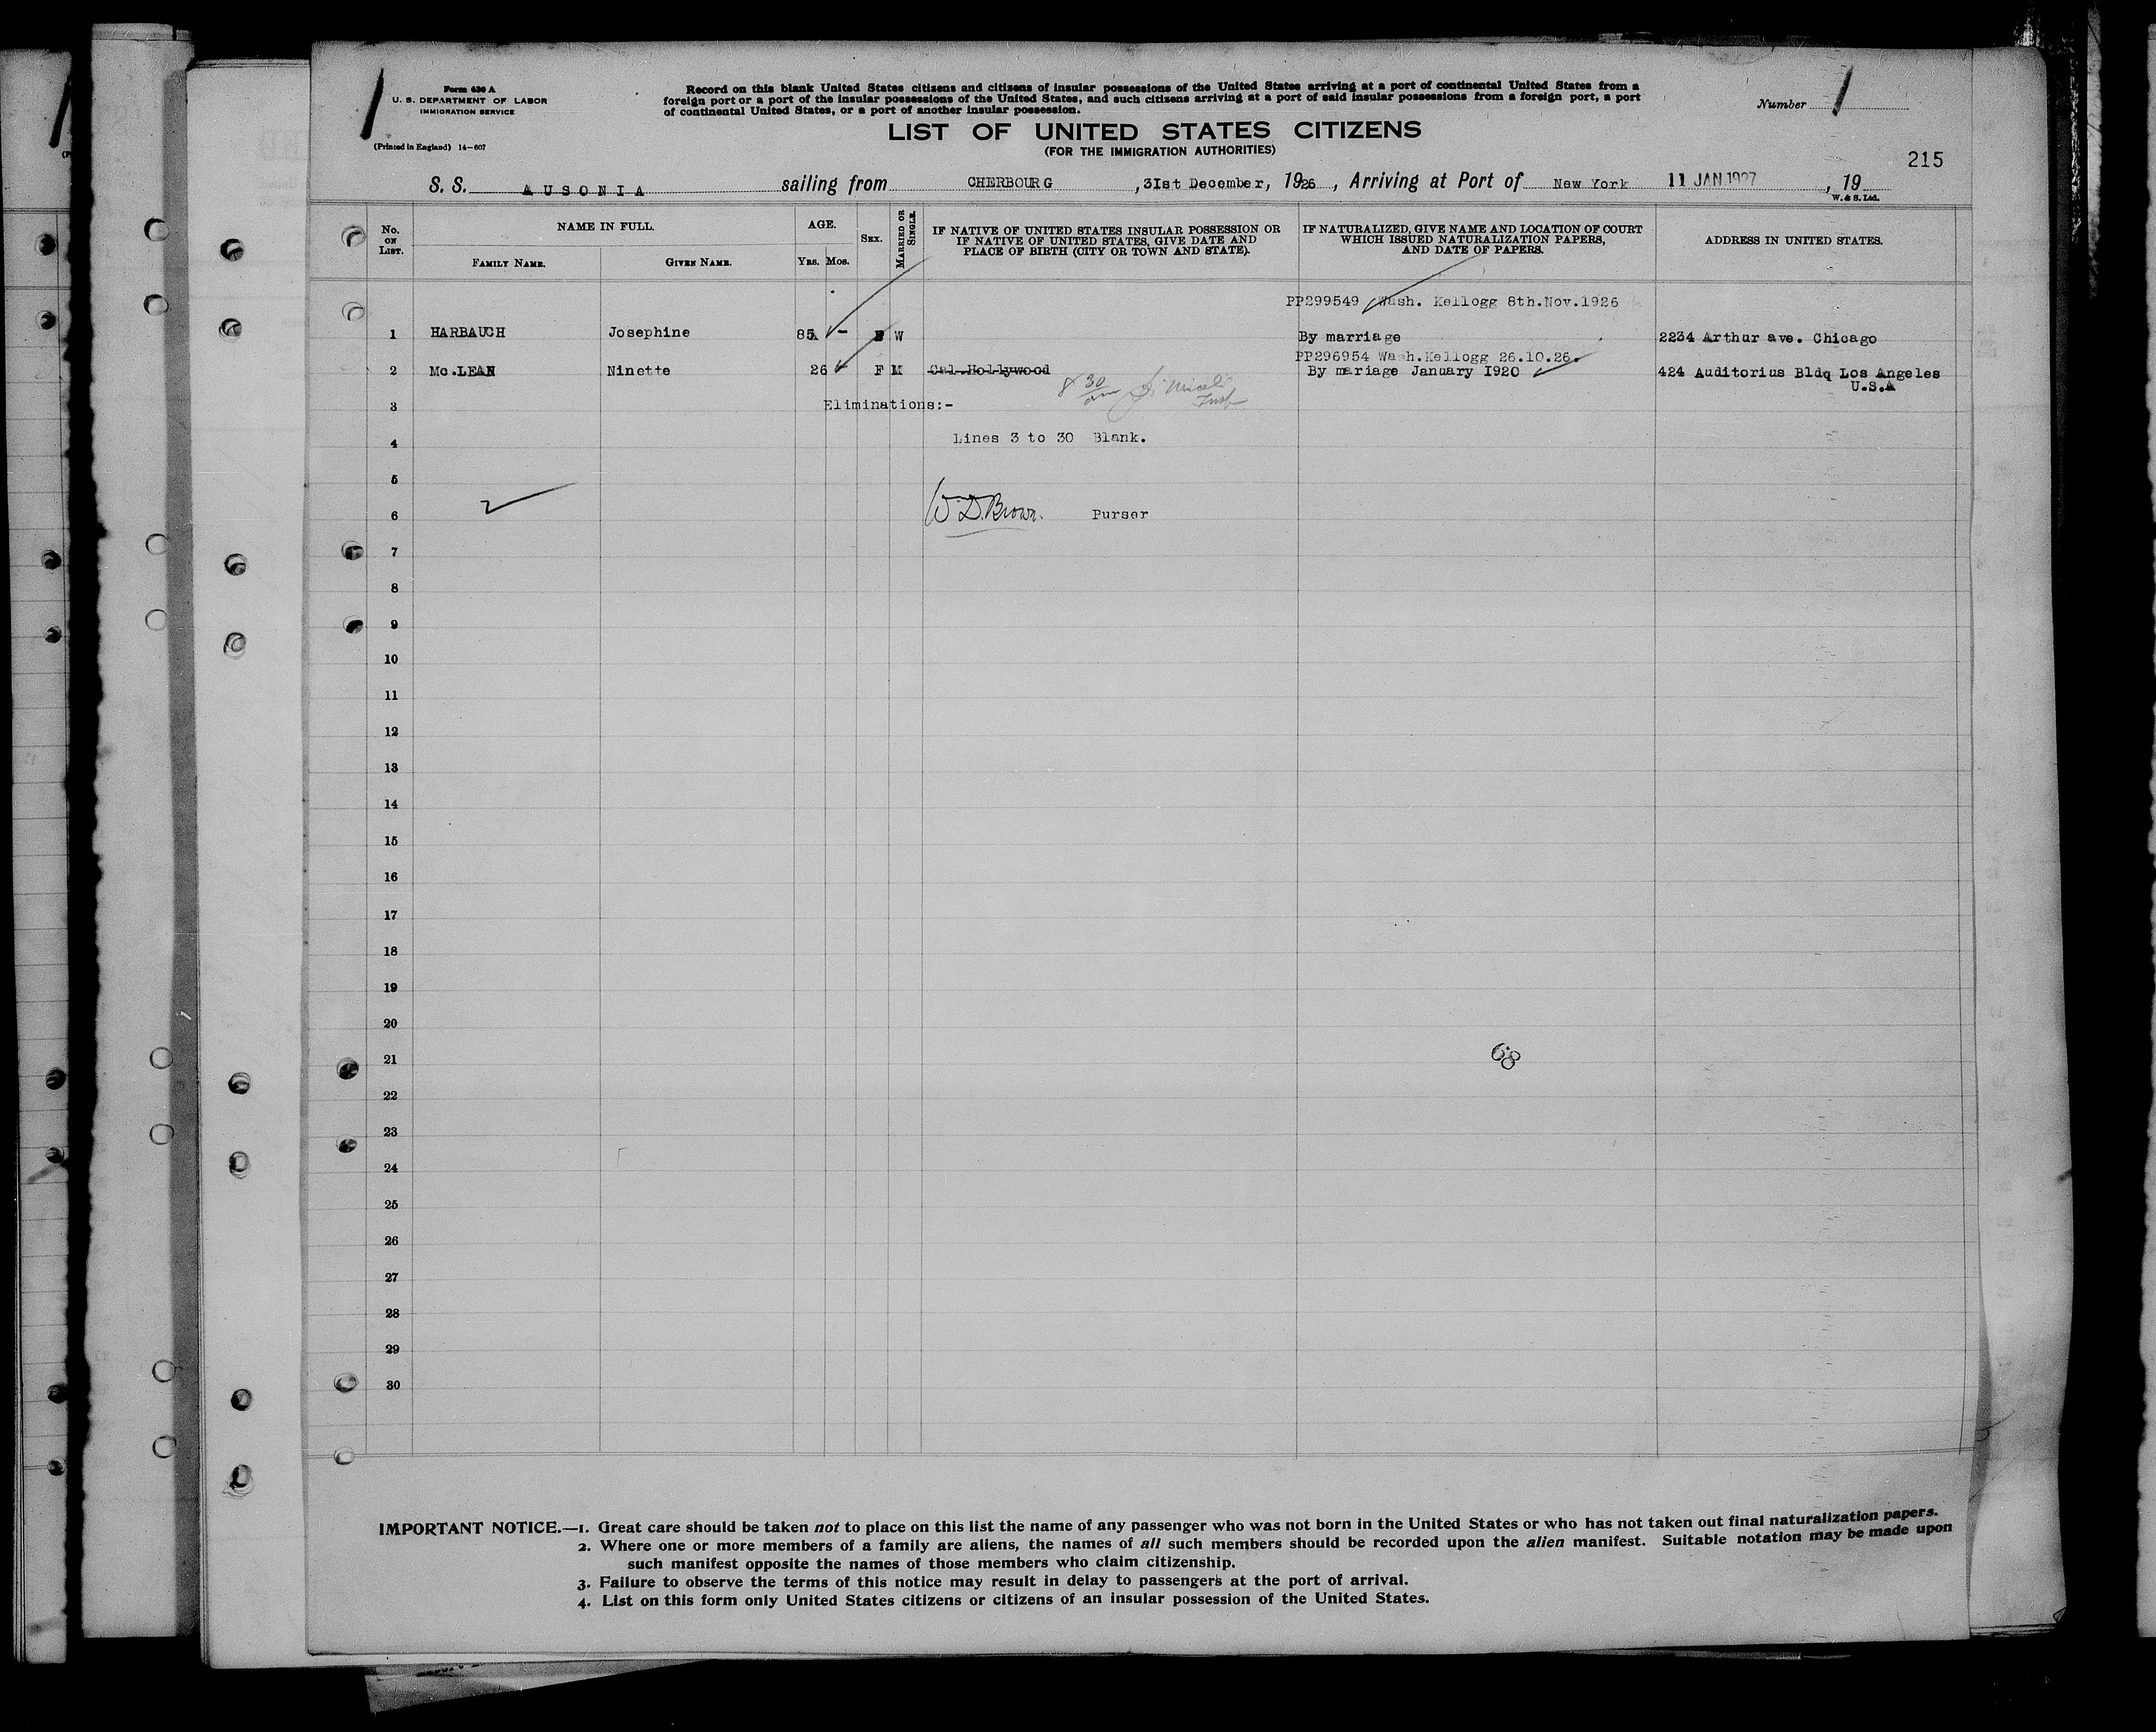 Form 630 A
U. S. DEPARTMENT OF LABOR
IMMIGRATION SERVICE
(Printed in England) 14—607
Record on this blank United States citizens and citizens of insular possessions of the United States arriving at a port of continental United States from a
foreign port or a port of the insular possessions of the United States, and such citizens arriving at a port of said insular possessions from a foreign port, a port
of continental United States, or a port of another insular possession.
Number 1
LIST OF UNITED STATES CITIZENS
(FOR THE IMMIGRATION AUTHORITIES)
215
S. S. AUSONIA sailing from CHERBOURG , 3Ist December, 1926 , Arriving at Port of New York 11 JAN 1927 , 19
W. & S. Ltd.
No. ON LIST. NAME IN FULL. AGE. SEX. MARRIED OR SINGLE. IF NATIVE OF UNITED STATES INSULAR POSSESSION OR IF NATIVE OF UNITED STATES, GIVE DATE AND PLACE OF BIRTH (CITY OR TOWN AND STATE). IF NATURALIZED, GIVE NAME AND LOCATION OF COURT WHICH ISSUED NATURALIZATION PAPERS, AND DATE OF PAPERS. ADDRESS IN UNITED STATES.
FAMILY NAME. GIVEN NAME. YRS. MOS.
PP299549 Wash. Kellogg 8th.Nov.1926
1 HARBAUCH Josephine 85 - F W By marriage 2234 Arthur ave. Chicago
PP296954 Wash.Kellogg 26.10.26.
2 Mc.LEAN Ninette 26 F M Cal.Hollywood By mariage January I920 424 Auditorius Bldq Los Angeles
U.S.A
8 30 am
3 Eliminations:-
4 Lines 3 to 30 Blank.
5
6 W.D.Brown. Purser
7
8
9
10
11
12
13
14
15
16
17
18
19
20
21
68
22
23
24
25
26
27
28
29
30
IMPORTANT NOTICE.—1. Great care should be taken not to place on this list the name of any passenger who was not born in the United States or who has not taken out final naturalization papers.
2. Where one or more members of a family are aliens, the names of all such members should be recorded upon the alien manifest. Suitable notation may be made upon
such manifest opposite the names of those members who claim citizenship.
3. Failure to observe the terms of this notice may result in delay to passengers at the port of arrival.
4. List on this form only United States citizens or citizens of an insular possession of the United States.